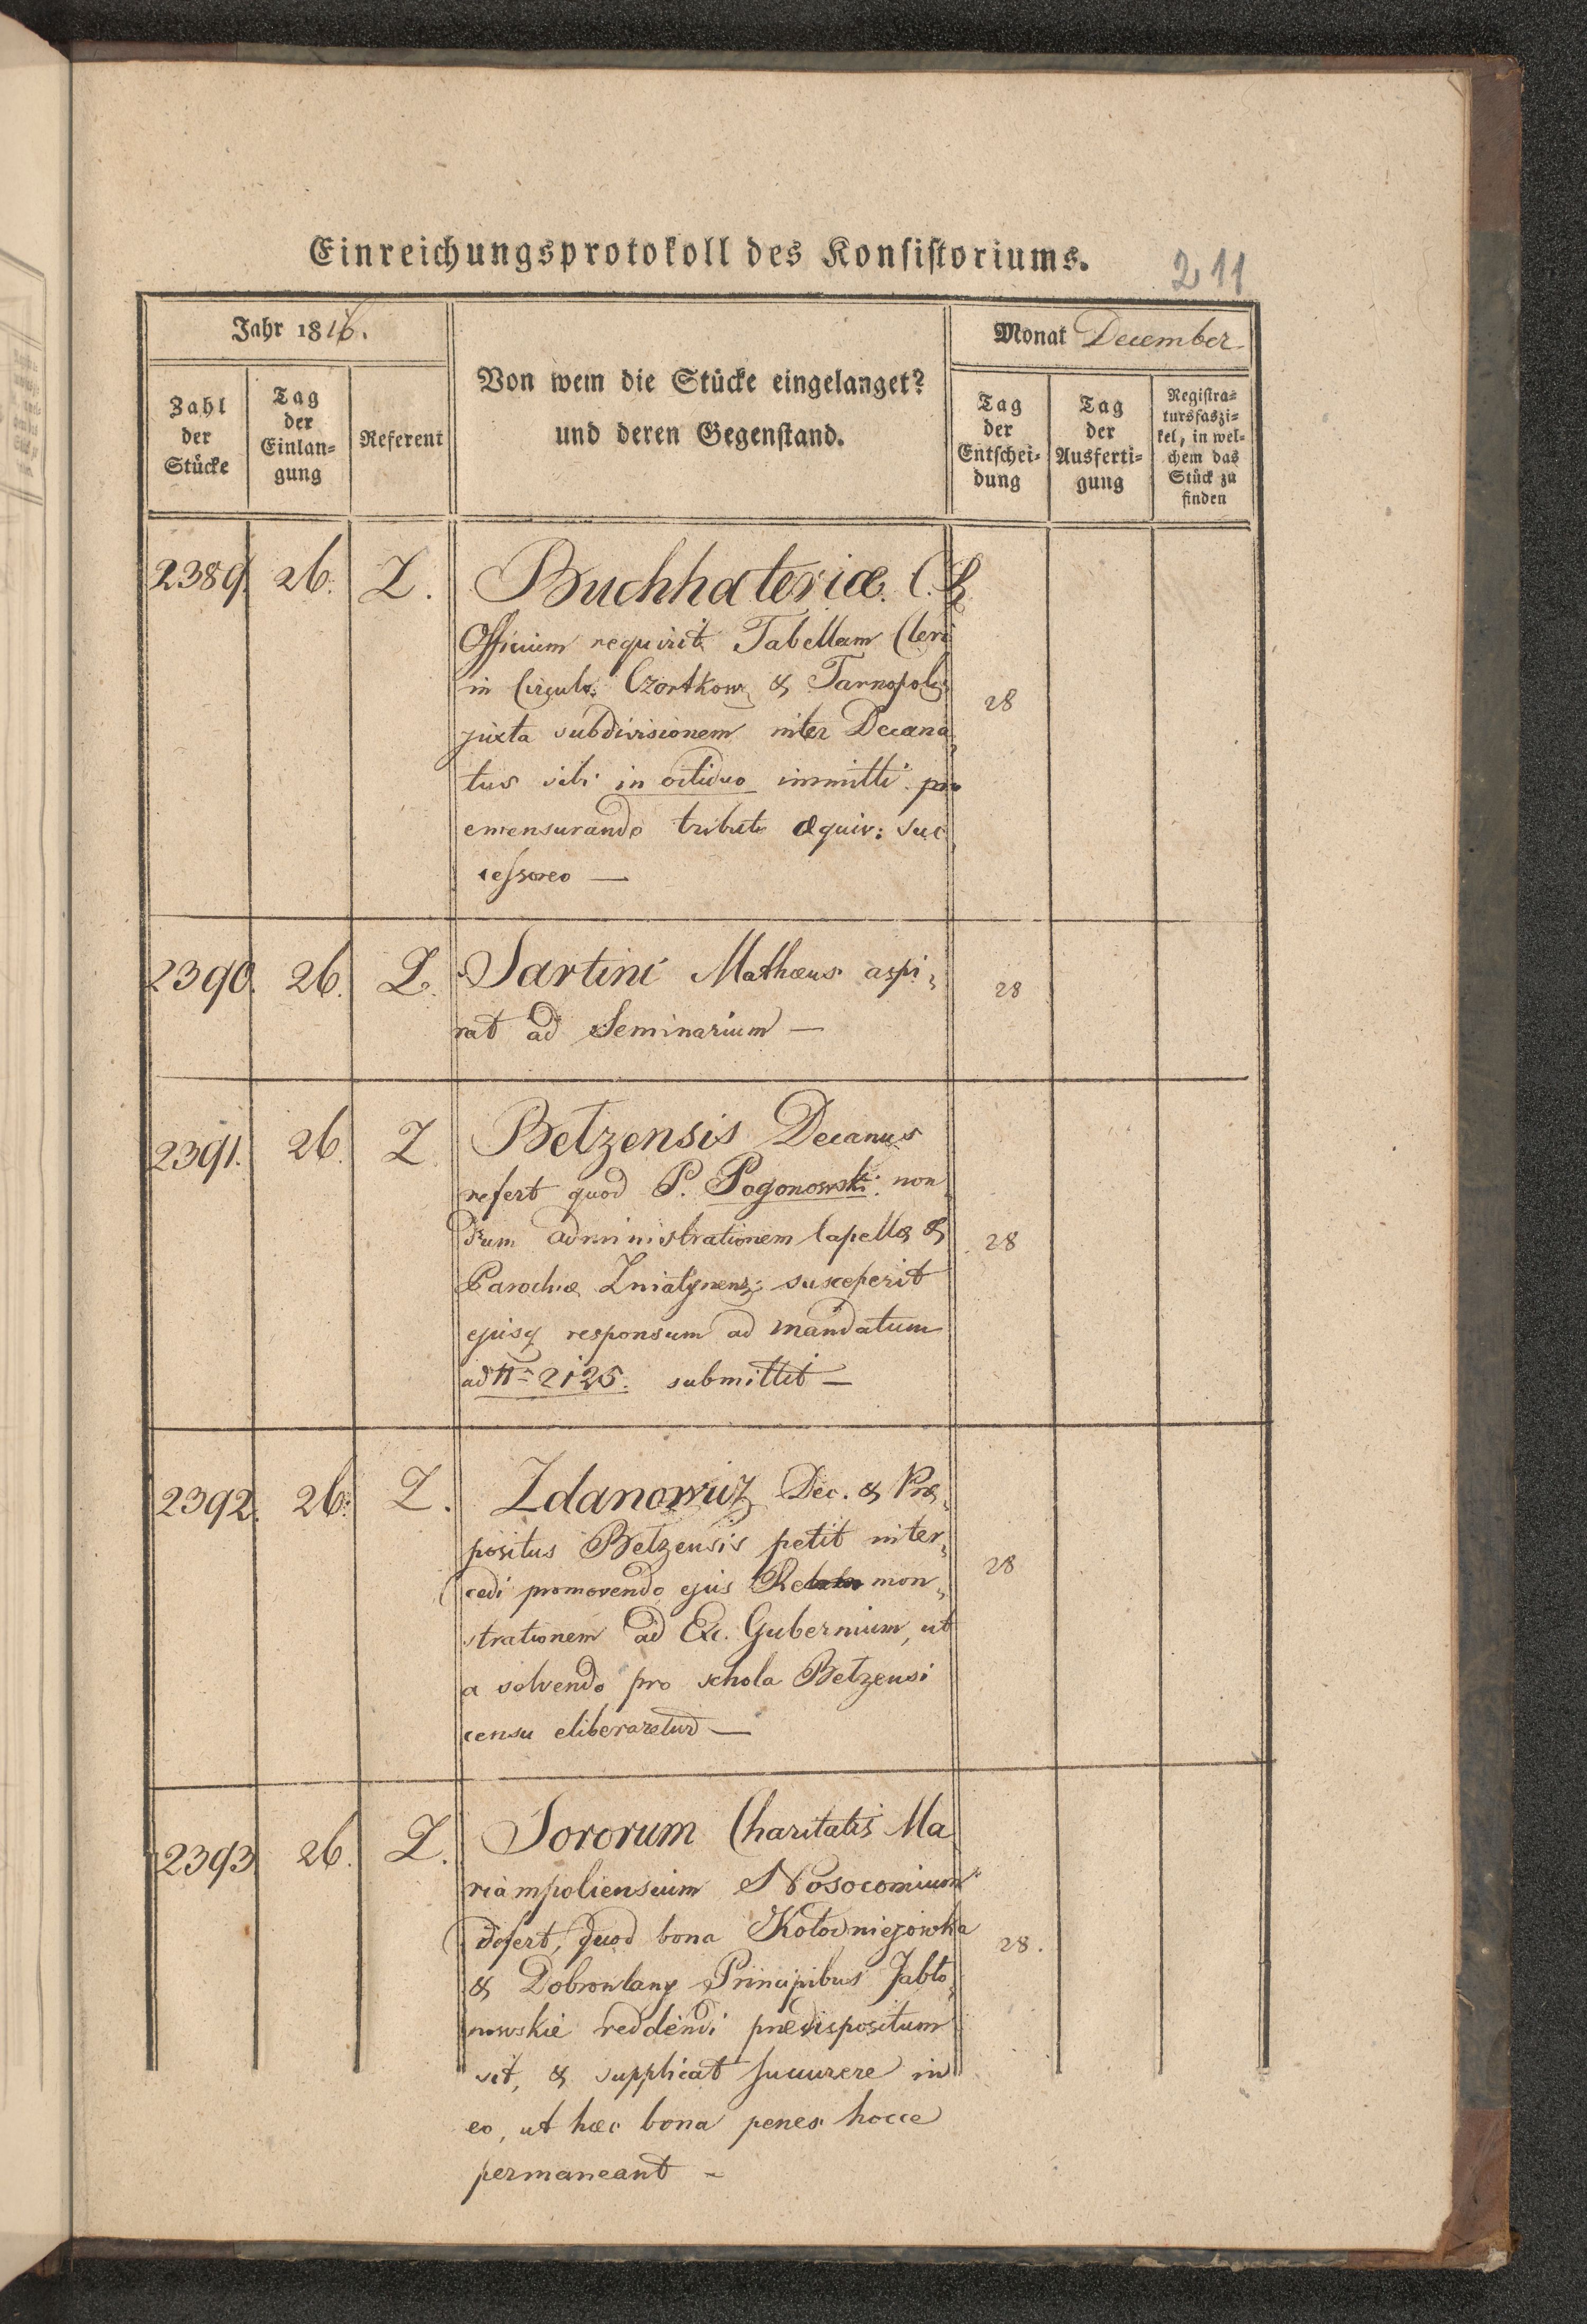 Einreichungsprotokoll des Konsistoriums.
211
Jahr 1816.
Monat December
Zahl der Stücke
Tag der Einlan=gung
Referent
Von wem die Stücke eingelanget?
und deren Gegenstand.
Tag der Entschei=dung
Tag der Ausferti=gung
Registra=tursfaszi=kel, in wel=chem das Stück zu finden
2389. 26. Z. Buchhateriæ. C. R.
Officium requirit Tabellam Cleri
in Circulo: Czortkow & Tarnopol:
juxta subdivisionem inter Decana,
28
tus sibi in octiduo immitti pro
emensurando tributo æquiv: suc,
cessoreo —
2390. 26. Z. Sartini Mathæus aspi,
28
rat ad Seminarium —
2391. 26. Z Betzensis Decanus
refert quod P. Pogonowski non,
dum administrationem Capellæ &
28
Parochiæ Zniatynens: susceperit
ejusq responsum ad mandatum
ad N= 2125. submittit —
2392. 26. Z. Zdanowicz Dec. & Præ,
positus Betzensis petit inter,
cedi promovendo ejus Re mon,
28
strationem ad Exc. Gubernium, ut
a solvendo pro schola Betzensi
censu eliberaretur —
2393 26. Z. Sororum Charitatis Ma
riampoliensium Nosocomium
defert, quod bona Kołodniejowka
28.
& Dobrowlany Principibus Jabło,
nowskie reddendi prædispositum
sit, & supplicat succurere in
eo, ut hæc bona penes hocce
permaneant –